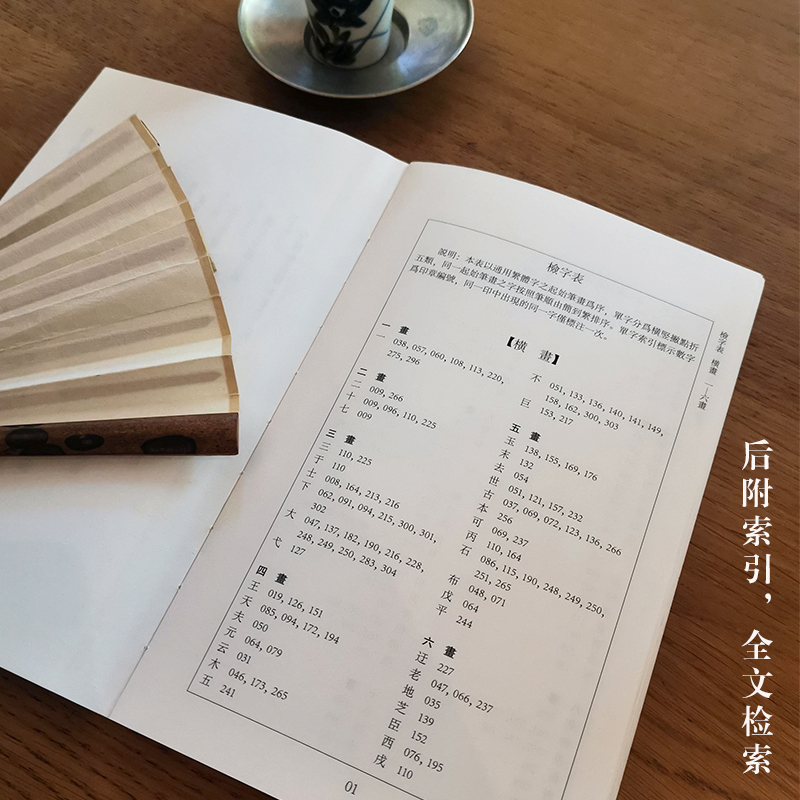 檢字表
說明：本表以通用繁體字之起始筆畫爲序，單字分爲橫竪撇點折
五類，同一起始筆畫之字按照筆順由簡到繁排序。單字索引標示數字
爲印章編號，同一印中出現的同一字僅標注一次。
【橫　畫】
一　畫
一 038, 057, 060, 108, 113, 220,
275, 296
二　畫
二 009, 266
十 009, 096, 110, 225
七 009
三　畫
三 110, 225
于 110
士 008, 164, 213, 216
下 062, 091, 094, 215, 300, 301,
302
大 047, 137, 182, 190, 216, 228,
248, 249, 250, 283, 304
弋 127
四　畫
王 019, 126, 151
天 085, 094, 172, 194
夫 050
元 064, 079
云 031
木 046, 173, 265
五 241
不 051, 133, 136, 140, 141, 149,
158, 162, 300, 303
巨 153, 217
五　畫
玉 138, 155, 169, 176
未 132
去 054
世 051, 121, 157, 232
古 037, 069, 072, 123, 136, 266
本 256
可 069, 237
丙 110, 164
石 086, 115, 190, 248, 249, 250,
251, 265
布 048, 071
戊 064
平 244
六　畫
迂 227
老 047, 066, 237
地 035
芝 139
臣 152
西 076, 195
戌 110
01
檢字表　橫畫　一—六畫
后附索引，全文检索